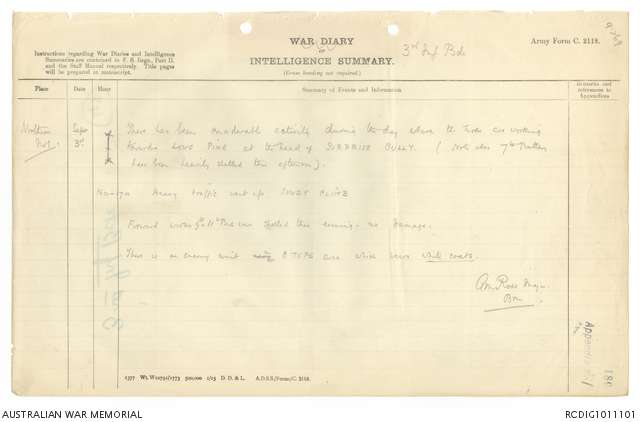 WAR DIARY
or
INTELLIGENCE SUMMARY.
(Erase heading not required.)
3rd Inf Bde
Army Form C. 2118.
Instructions regarding War Diaries and Intelligence
Summaries are contained in F. S. Regs., Part II.
and the Staff Manual respectively. Title pages
will be prepared in manuscript.
Place
Date
Hour
Summary of Events and Information
Remarks and
references to
Appendices
Sept
3rd
There has been considerable activity during the day where the Turks are working
towards LONE PINE at the head of SURPRISE GULLY. (Note also 7th Battery
has been heavily shelled this afternoon).
Heavy traffic went up
Forward works shelled this evening - no damage.
There is an enemy unit who wear white coats.
Ross Major
Bm
Appendix
1577 Wt. W10791/1773 500,000 1/15 D. D. & L. A.D.S.S./Forms/C. 2118.
AUSTRALIAN WAR MEMORIAL
RCDIG1011101